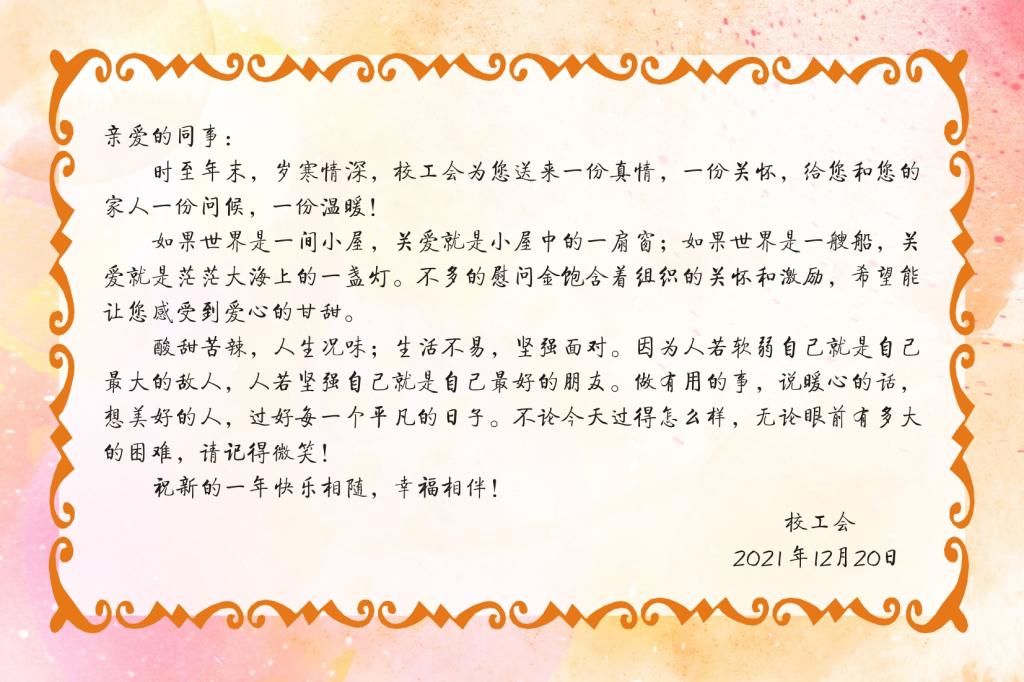 亲爱的同事：
时至年末，岁寒情深，校工会为您送来一份真情，一份关怀，给您和您的
家人一份问候，一份温暖！
如果世界是一间小屋，关爱就是小屋中的一扇窗；如果世界是一艘船，关
爱就是茫茫大海上的一盏灯。不多的慰问金饱含着组织的关怀和激励，希望能
让您感受到爱心的甘甜。
酸甜苦辣，人生况味；生活不易，坚强面对。因为人若软弱自己就是自己
最大的敌人，人若坚强自己就是自己最好的朋友。做有用的事，说暖心的话，
想美好的人，过好每一个平凡的日子。不论今天过得怎么样，无论眼前有多大
的困难，请记得微笑！
祝新的一年快乐相随，幸福相伴！
校工会
2021年12月20日